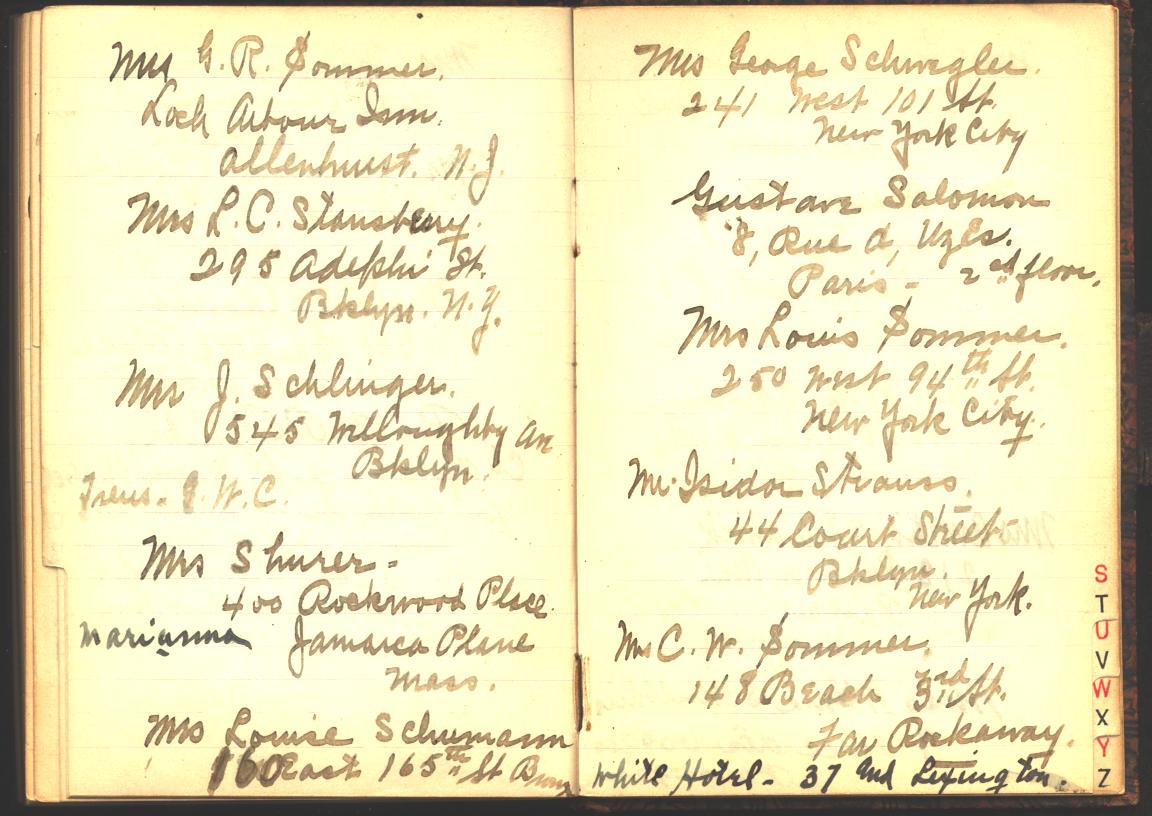 Mrs G. R. Sommer.
Loch Arbour Inn.
Allenhurst. N.J.
Mrs L. C. Stansberry.
295 Adelphi St.
Bklyn. N.Y.
Mrs J. Schlinger.
545 Willoughby Av
Bklyn.
Trens. J. W. C.
Mrs Shurer -
400 Rockwood Place.
Marianna Jamaica Plane
Mass.
Mrs Louise Schumann
160 East 165th St Bronx
Mrs George Schwegler.
241 West 101 St.
New York City
Gustave Salomon
8, Rue d, Uzés.
Paris - 2nd floor.
Mrs Louis Sommer.
250 West 94th St.
New York City.
Mr. Isidor Strauss.
44 Court Street
Bklyn.
New York.
Mrs C. W. Sommer.
148 Beach 3rd St.
Far Rockaway.
White Hotel - 37 and Lexington.
S
T
U
V
W
X
Y
Z